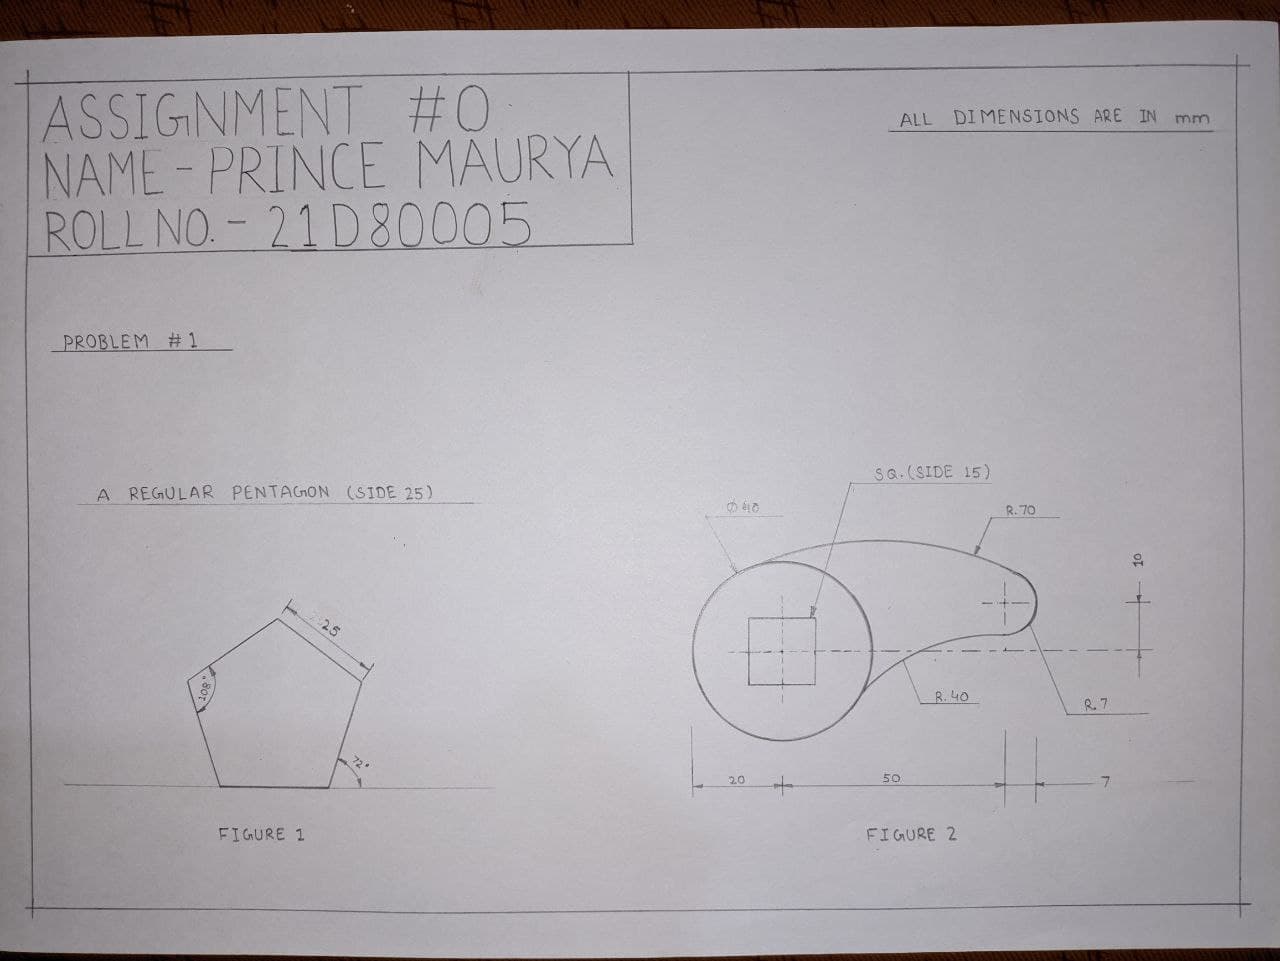 ASSIGNMENT #0
NAME - PRINCE MAURYA
ROLL NO. - 21D80005
ALL DIMENSIONS ARE IN mm
PROBLEM #1
A REGULAR PENTAGON (SIDE 25)
25
108°
72°
FIGURE 1
SQ. (SIDE 15)
Ø 40
R.70
10
R.40
R.7
20
50
7
FIGURE 2